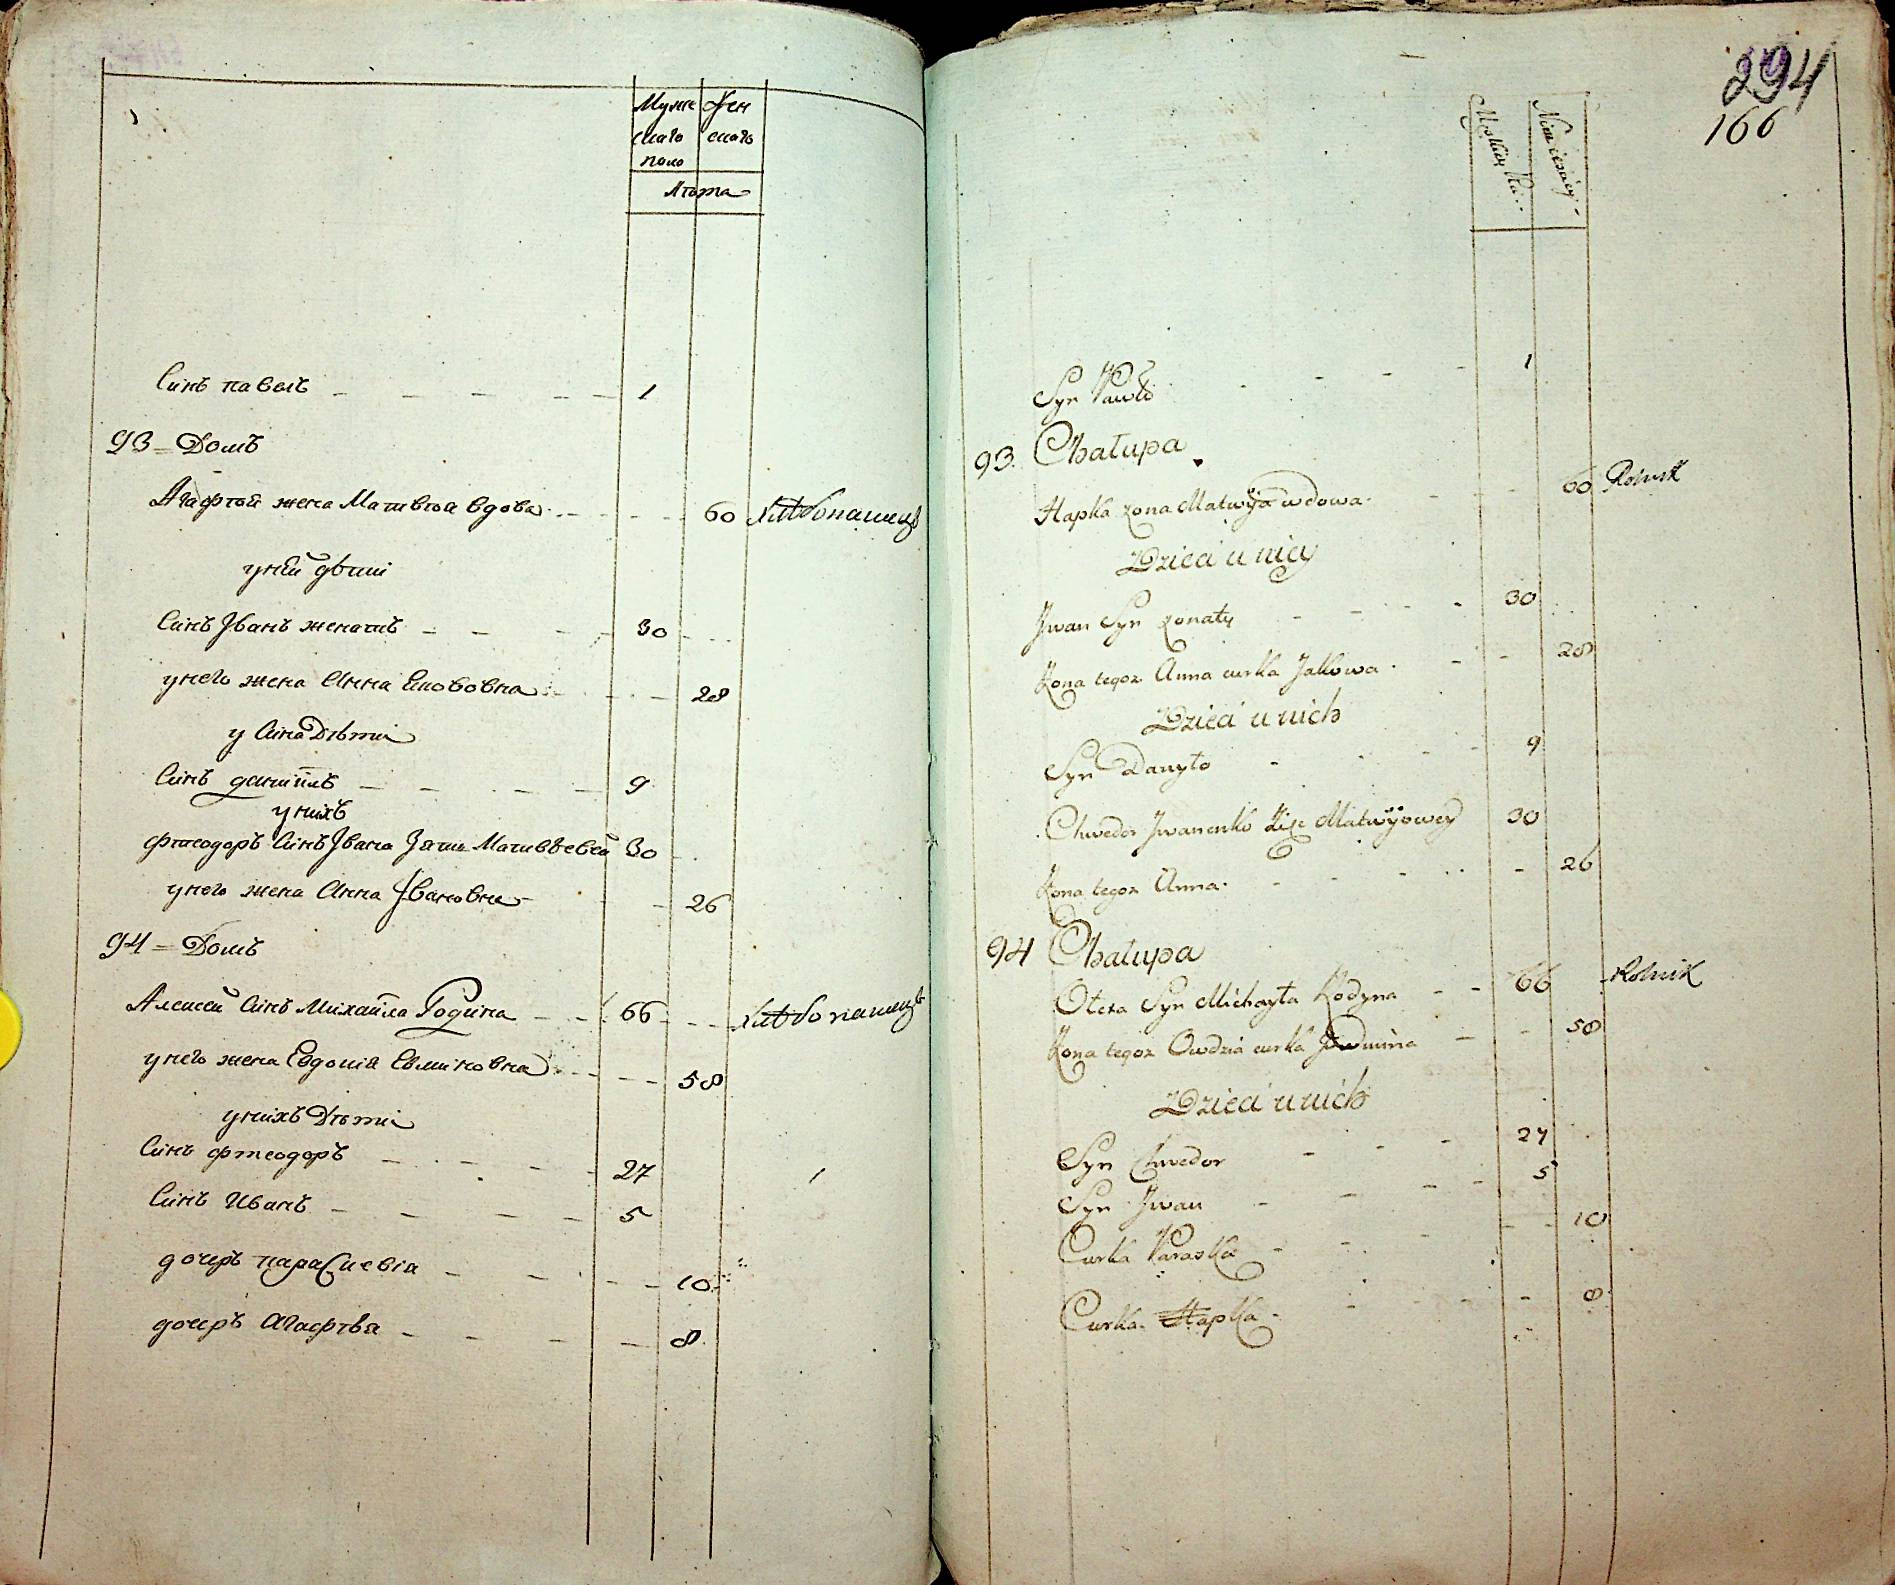 Муже Жен
скаго скаго
полу
Лѣта
Синъ павелъ 1
93 Домъ
Агафiой жена Матвѣя вдова 60 хлѣбопашецъ
у ней дѣти
Синъ Іванъ женатъ 30
у него жена Анна Якововна 28
у Сина Дѣти
Синъ данiилъ 9
у нихъ
фтеодоръ Синъ Івана Зять Матвѣевей 30
у него жена Анна Івановна 26
94 Домъ
Алексей Синъ Михайла Години 66 хлѣбопашецъ
у него жена Евдокiя Евминовна 58
у нихъ Дѣти
Синъ фтеодоръ 27
Синъ Иванъ 5
дочеръ параскиевiя 10
дочеръ Агафтвя 8
294
166
Syn Pawło 1
93. Chałupa
Hapka żona Matwÿja wdowa 60 Rolnik
Dzieci u niey
Jwan Syn żonaty 30
Żona tegoż Anna curka Jakowa 28
Dzieci u nich
Syn Danyło 9
Chwedor Jwanenko Zięc Matwÿowey 30
Żona tegoż Anna 26
94 Chałupa
Olexa Syn Michayła Hodyna 66 Rolnik
Żona tegoż Owdzia curka 58
Dzieci u nich
Syn Chwedor 27
Syn Jwan 5
Curka Paraska 10
Curka Hapka 8